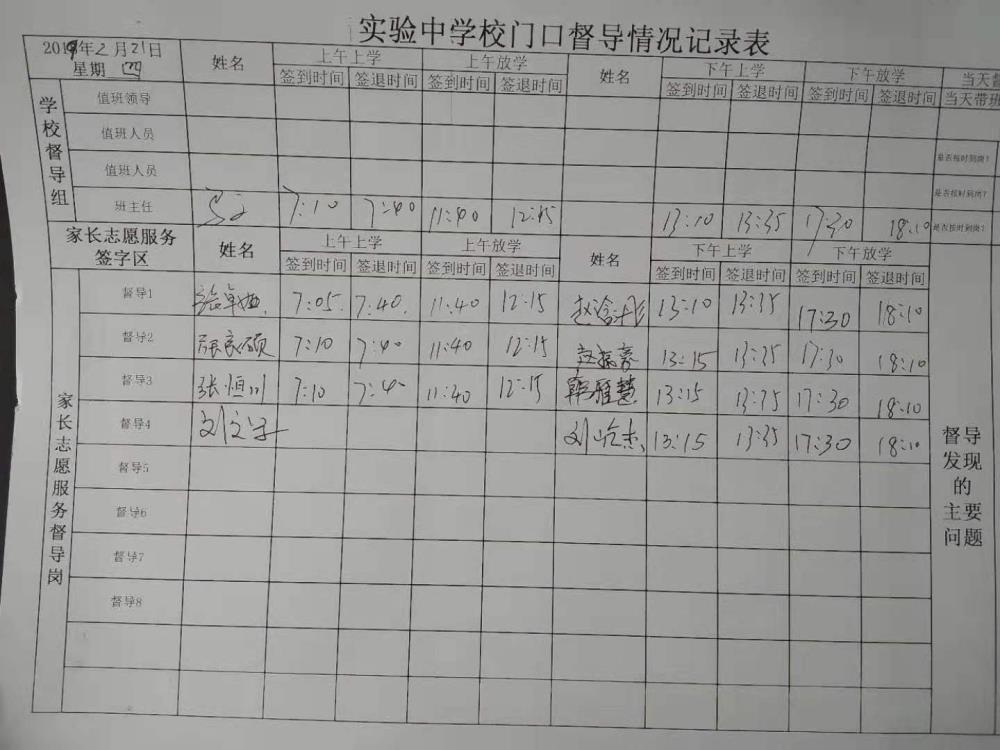 实验中学校门口督导情况记录表
2019年2月21日 星期四 姓名 上午上学 上午放学 姓名 下午上学 下午放学 当天
签到时间 签退时间 签到时间 签退时间 签到时间 签退时间 签到时间 签退时间 当天带班
学校督导组
值班领导
值班人员 是否按时到岗?
值班人员 是否按时到岗?
班主任 7:10 7:40 11:40 12:15 13:10 13:35 17:30 18:10 是否按时到岗?
家长志愿服务签字区 姓名 上午上学 上午放学 姓名 下午上学 下午放学
签到时间 签退时间 签到时间 签退时间 签到时间 签退时间 签到时间 签退时间
家长志愿服务督导岗
督导1 7:05 7:40 11:40 12:15 13:10 13:35 17:30 18:10
督导2 7:10 7:40 11:40 12:15 赵振豪 13:15 13:35 17:30 18:10
督导3 张恒川 7:10 7:4 11:40 12:15 韩雁慧 13:15 13:35 17:30 18:10
督导4 刘文 刘 杰 13:15 13:35 17:30 18:10
督导5
督导6
督导7
督导8
督导
发现
的
主要
问题